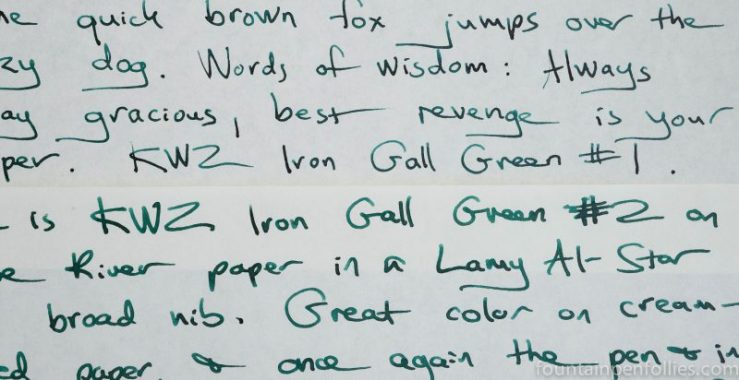 he quick brown fox jumps over the
zy dog. Words of wisdom: Always
ay gracious, best revenge is your
per. KWZ Iron Gall Green #1.
is KWZ Iron Gall Green #2 on
e River paper in a Lamy Al-Star
broad nib. Great color on cream-
ed paper & once again the pen & in
fountainpenfollies.com